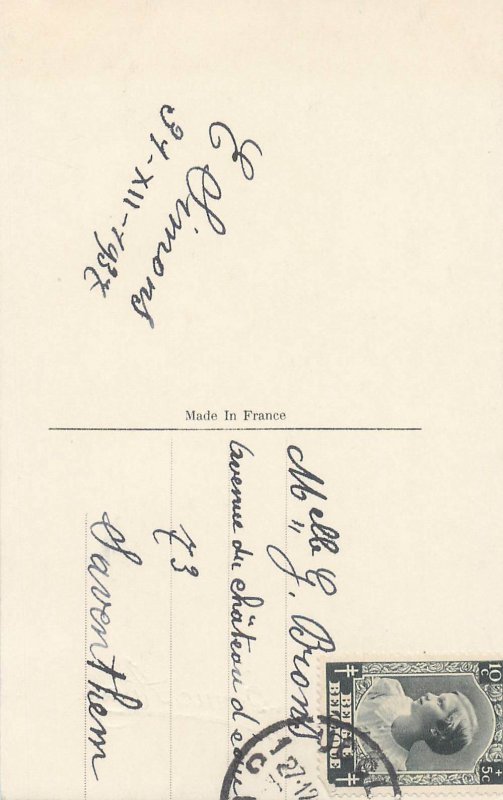 E Simons
31-XII-1937
Made In France
Melle G. Brons
Avenue du château d'eau
73
Saventhem
10 c + 5c
BELGIE
BELGIQUE
1
27-12